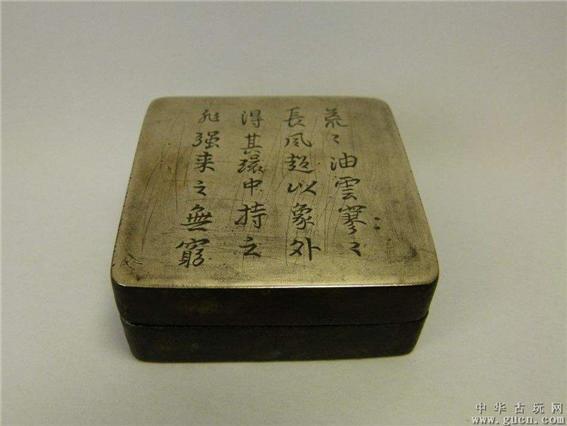 荒〻油雲寥〻
長風超以象外
得其環中持之
非强来之無窮
中华古玩网
www.gucn.com